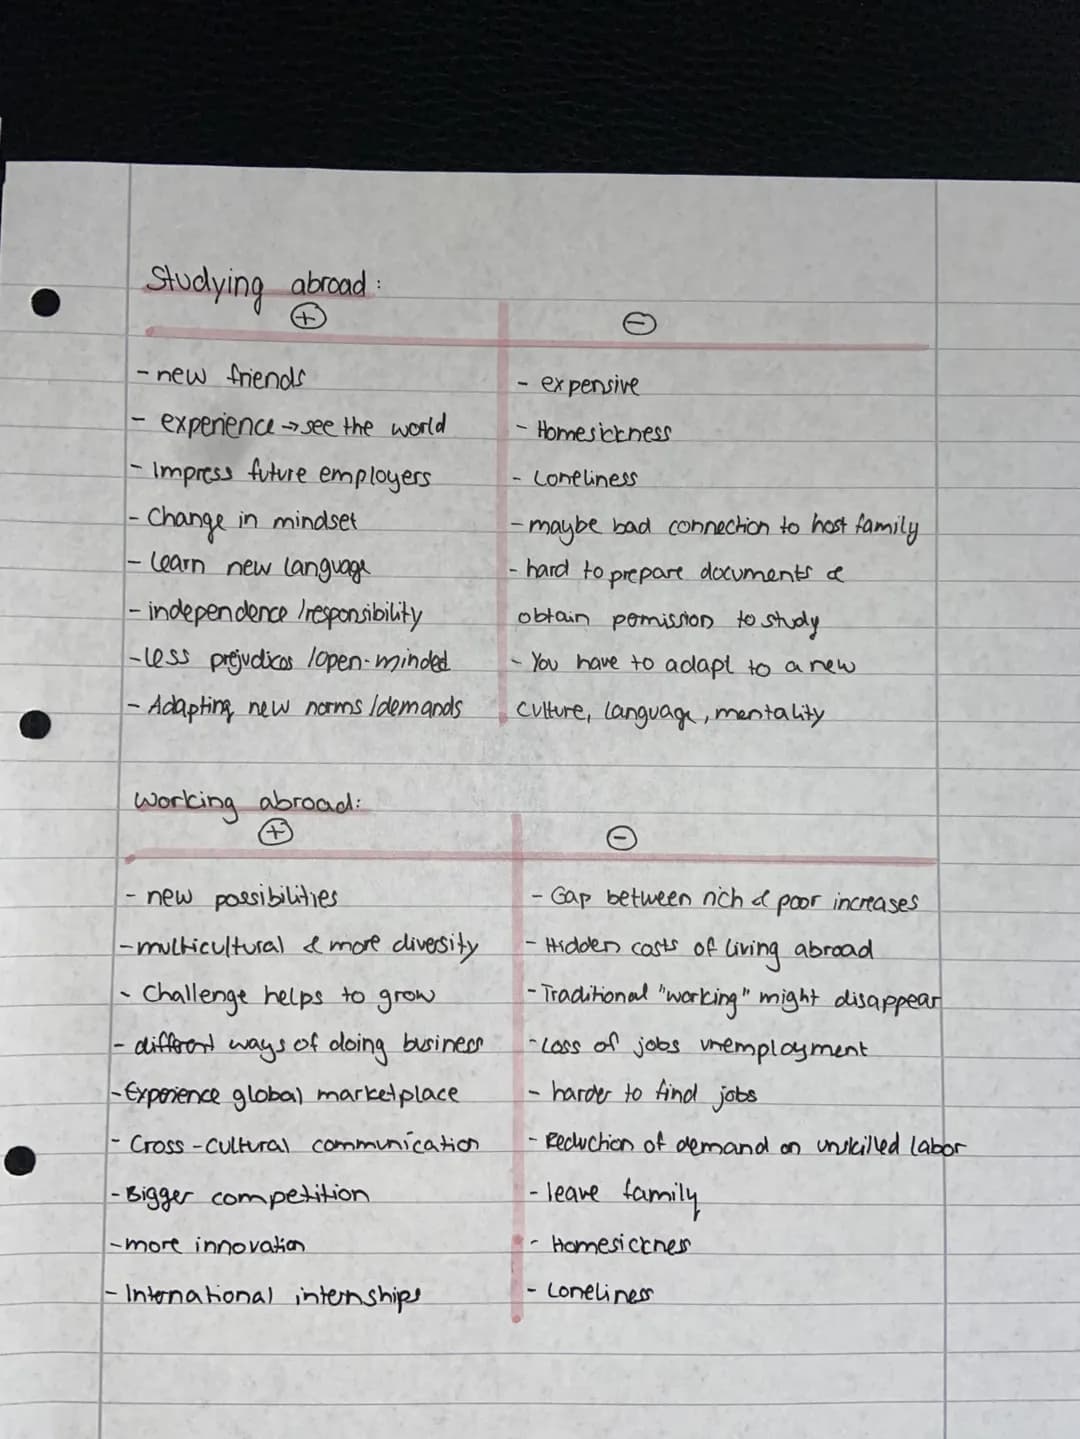 Studying abroad:
+
-
- new friends
- experience → see the world
- Impress future employers
- Change in mindset
- learn new language
- independence / responsibility
- less prejudices / open-minded
- Adapting new norms / demands
- expensive
- Homesickness
- Loneliness
- maybe bad connection to host family
- hard to prepare documents &
obtain permission to study
- You have to adapt to a new
culture, language, mentality
Working abroad:
+
-
- new possibilities
- multicultural & more diversity
- Challenge helps to grow
- different ways of doing business
- Experience global marketplace
- Cross-cultural communication
- Bigger competition
- more innovation
- International internships
- Gap between rich & poor increases
- Hidden costs of living abroad
- Traditional "working" might disappear
- Loss of jobs unemployment
- harder to find jobs
- Reduction of demand on unskilled labor
- leave family
- Homesicknes
- Loneliness